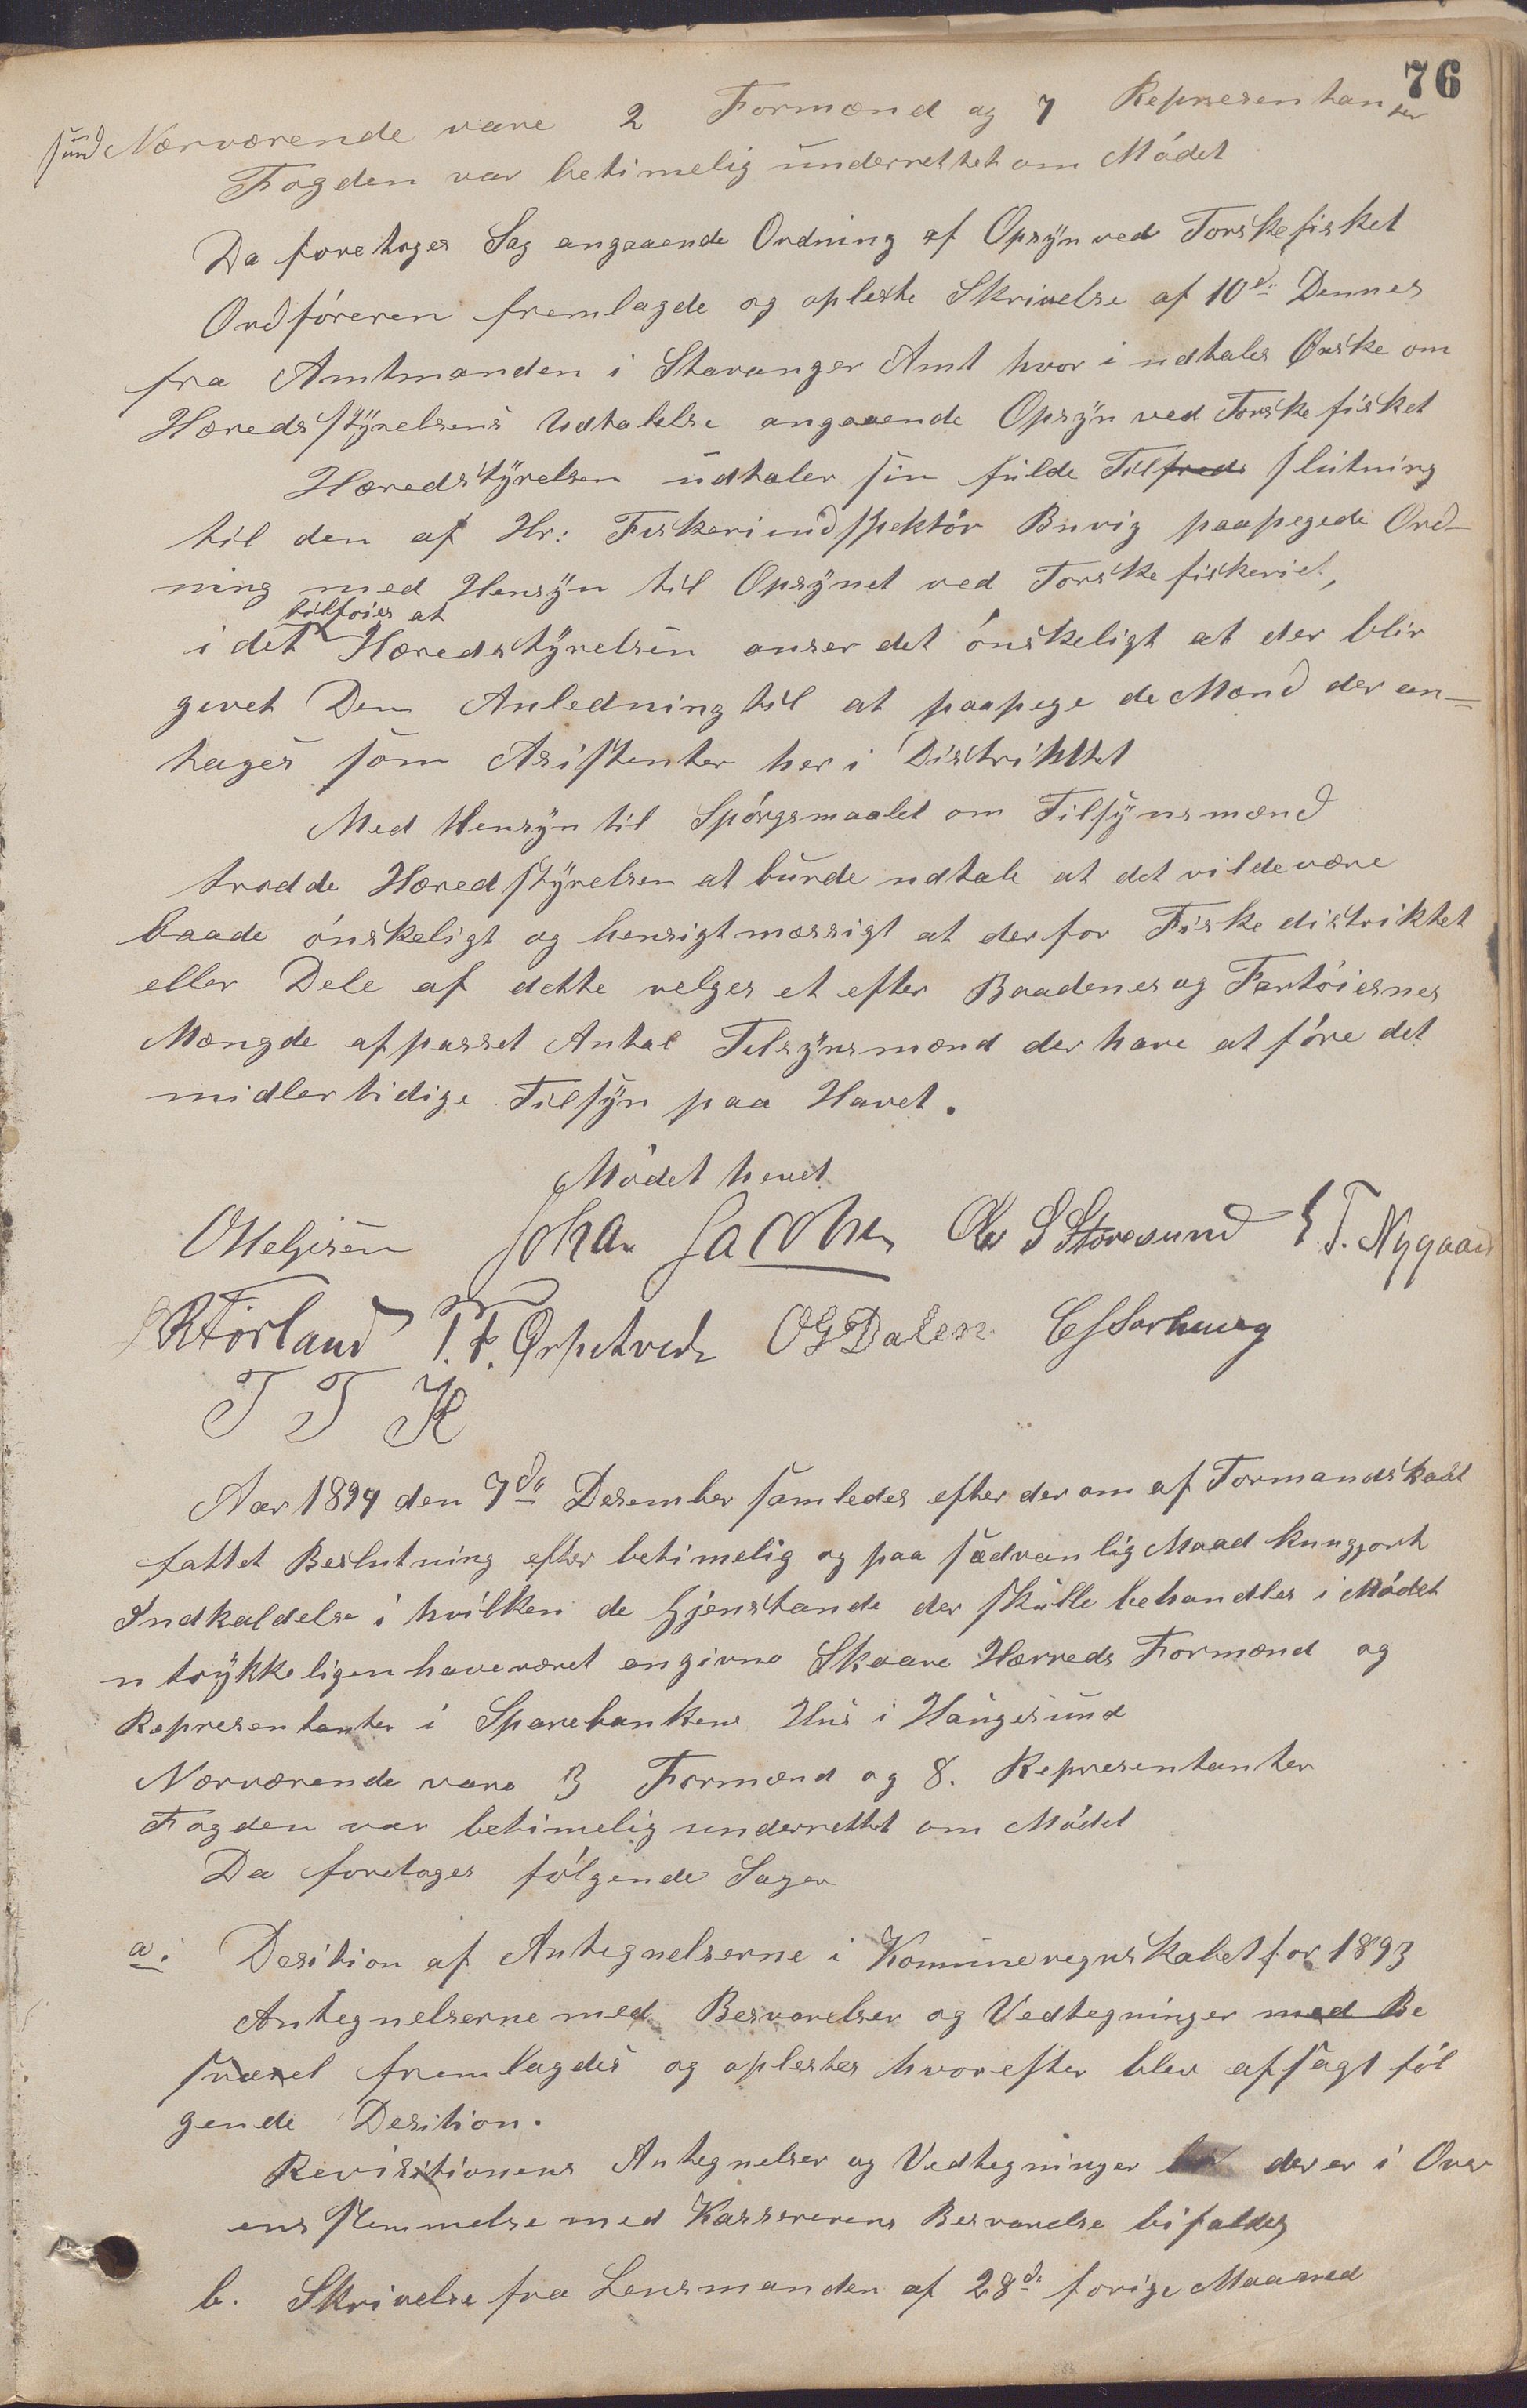 76
sund Nærværende vare 2 Formænd og 7 Representanter
Fogden var betimelig underrettet om Mödet
Da foretoges Sag angaaende Ordning af Opsyn ved Torskefisket
Ordföreren fremlagde og opleste Skrivelse af 10de Dennes
fra Amtmanden i Stavanger Amt hvor i udtales Ønske om
Heredsstyrelsens Udtalelse angaaende Opsyn ved Torskefisket
Heredstyrelsen udtaler sin fulde Tilfreds slutning
til den af Hr: Fiskeriindspektör Buvig paapegede Ord-
ning med Hensyn til Opsynet ved Torskefiskeriet,
tilföies at
i det Heredstyrelsen anser det önskeligt at der blir
givet Dem Anledning til at paapege de Mænd der an-
tages som Asistenter her i Distriktet
Med Hensyn til Spörgsmaalet om Tilsynsmænd
trodde Heredstyrelsen at burde udtale at det vilde være
baade önskeligt og hensigtmæssigt at der for Fiskedistriktet
eller Dele af dette velges et efter Baadenes og Fartöiernes
Mængde afpasset Antal Tilsynsmænd der have at före det
midlertidige Tilsyn paa Havet.
Mödet hevet
O Helgesen Johan Jacobsen Ole S Storesund T. Nygaard
R Förland T. T. Ørpetvedt O G Dalen
T T K
Aar 1894 den 7de Desember samledes efter derom af Formandskabet
fattet Beslutning efter betimelig og paa sædvanlig Maad kungjort
Indkaldelse i hvilken de Gjenstande der skulle behandles i Mödet
utrykkeligen have været angivne Skaare Herreds Formænd og
Representanter i Sparebankens Hus i Haugesund
Nærværende vare 3 Formænd og 8. Representanter
Fogden var betimelig underrettet om Mödet
Da foretoges fölgende Sager
a. Desition af Antegnelserne i Kommuneregnskabet for 1893
Antegnelserne med Besvarelser og Vedtegninger med Be
svarel fremlagdes og oplestes hvorefter blev afsagt föl
gende Desition.
Revisitionens Antegnelser og Vedtegninger der er i Over
ensstemmelse med Kassererens Besvarelse bifaldes
b. Skrivelse fra Lensmanden af 28de forige Maaned